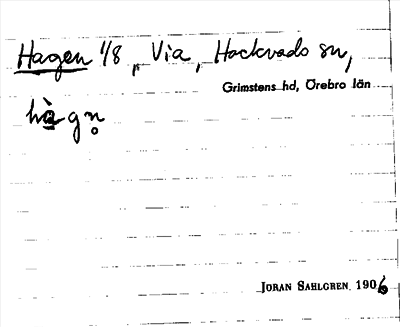 Hagen 1/8, Via, Hackvads sn,
Grimstens hd, Örebro län
hàgn̥
JÖRAN SAHLGREN, 1906